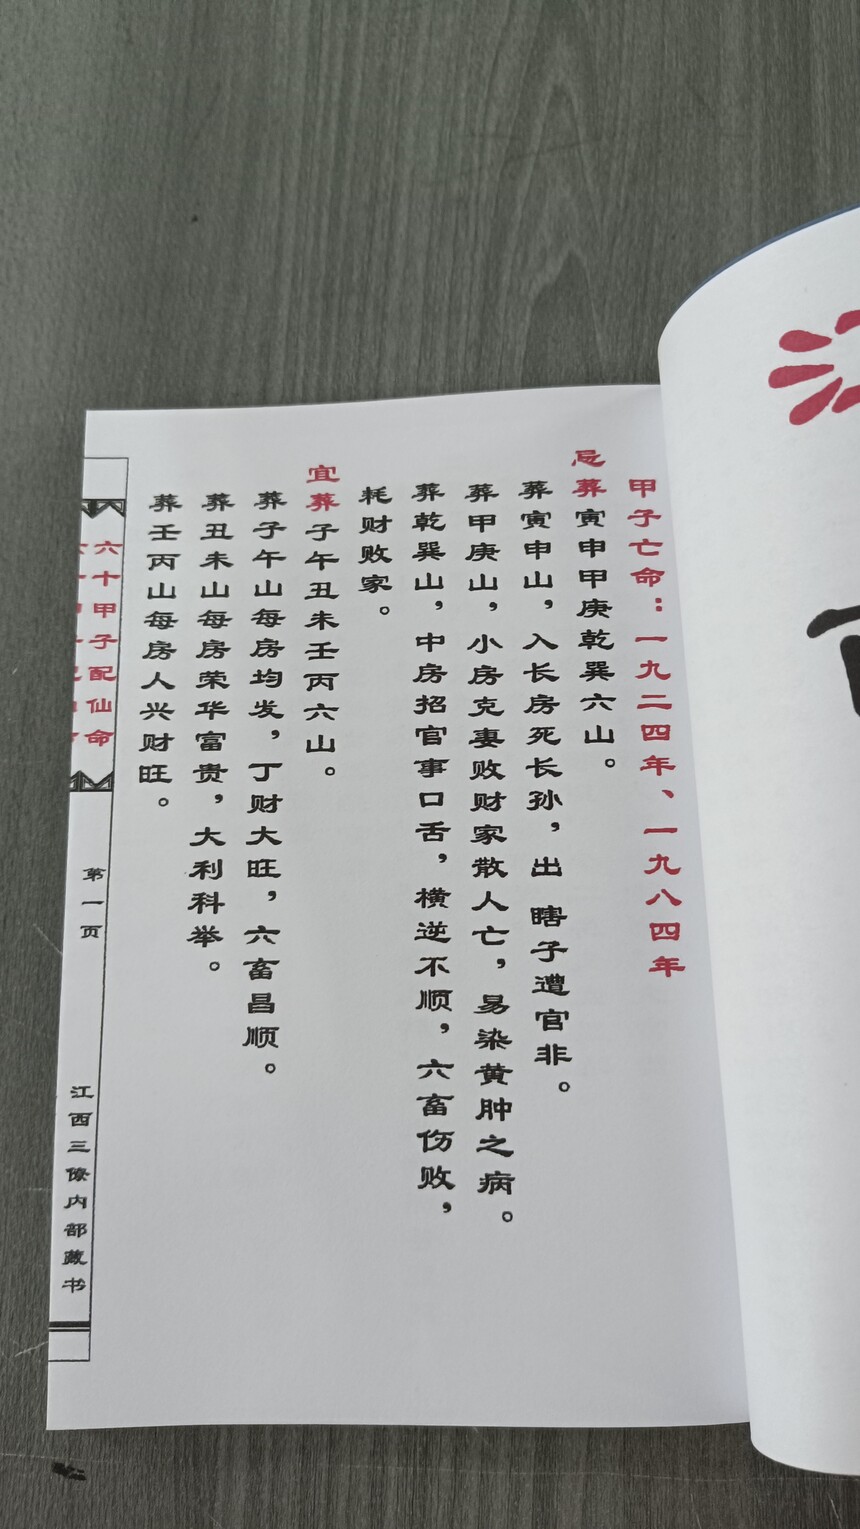 甲子亡命：一九二四年、一九八四年
忌葬寅申甲庚乾巽六山。
葬寅申山，入长房死长孙，出 瞎子遭官非。
葬甲庚山，小房克妻败财家散人亡，易染黄肿之病。
葬乾巽山，中房招官事口舌，横逆不顺，六畜伤败，
耗财败家。
宜葬子午丑未壬丙六山。
葬子午山每房均发，丁财大旺，六畜昌顺。
葬丑未山每房荣华富贵，大利科举。
葬壬丙山每房人兴财旺。
六十甲子配仙命
第一页
江西三僚内部藏书